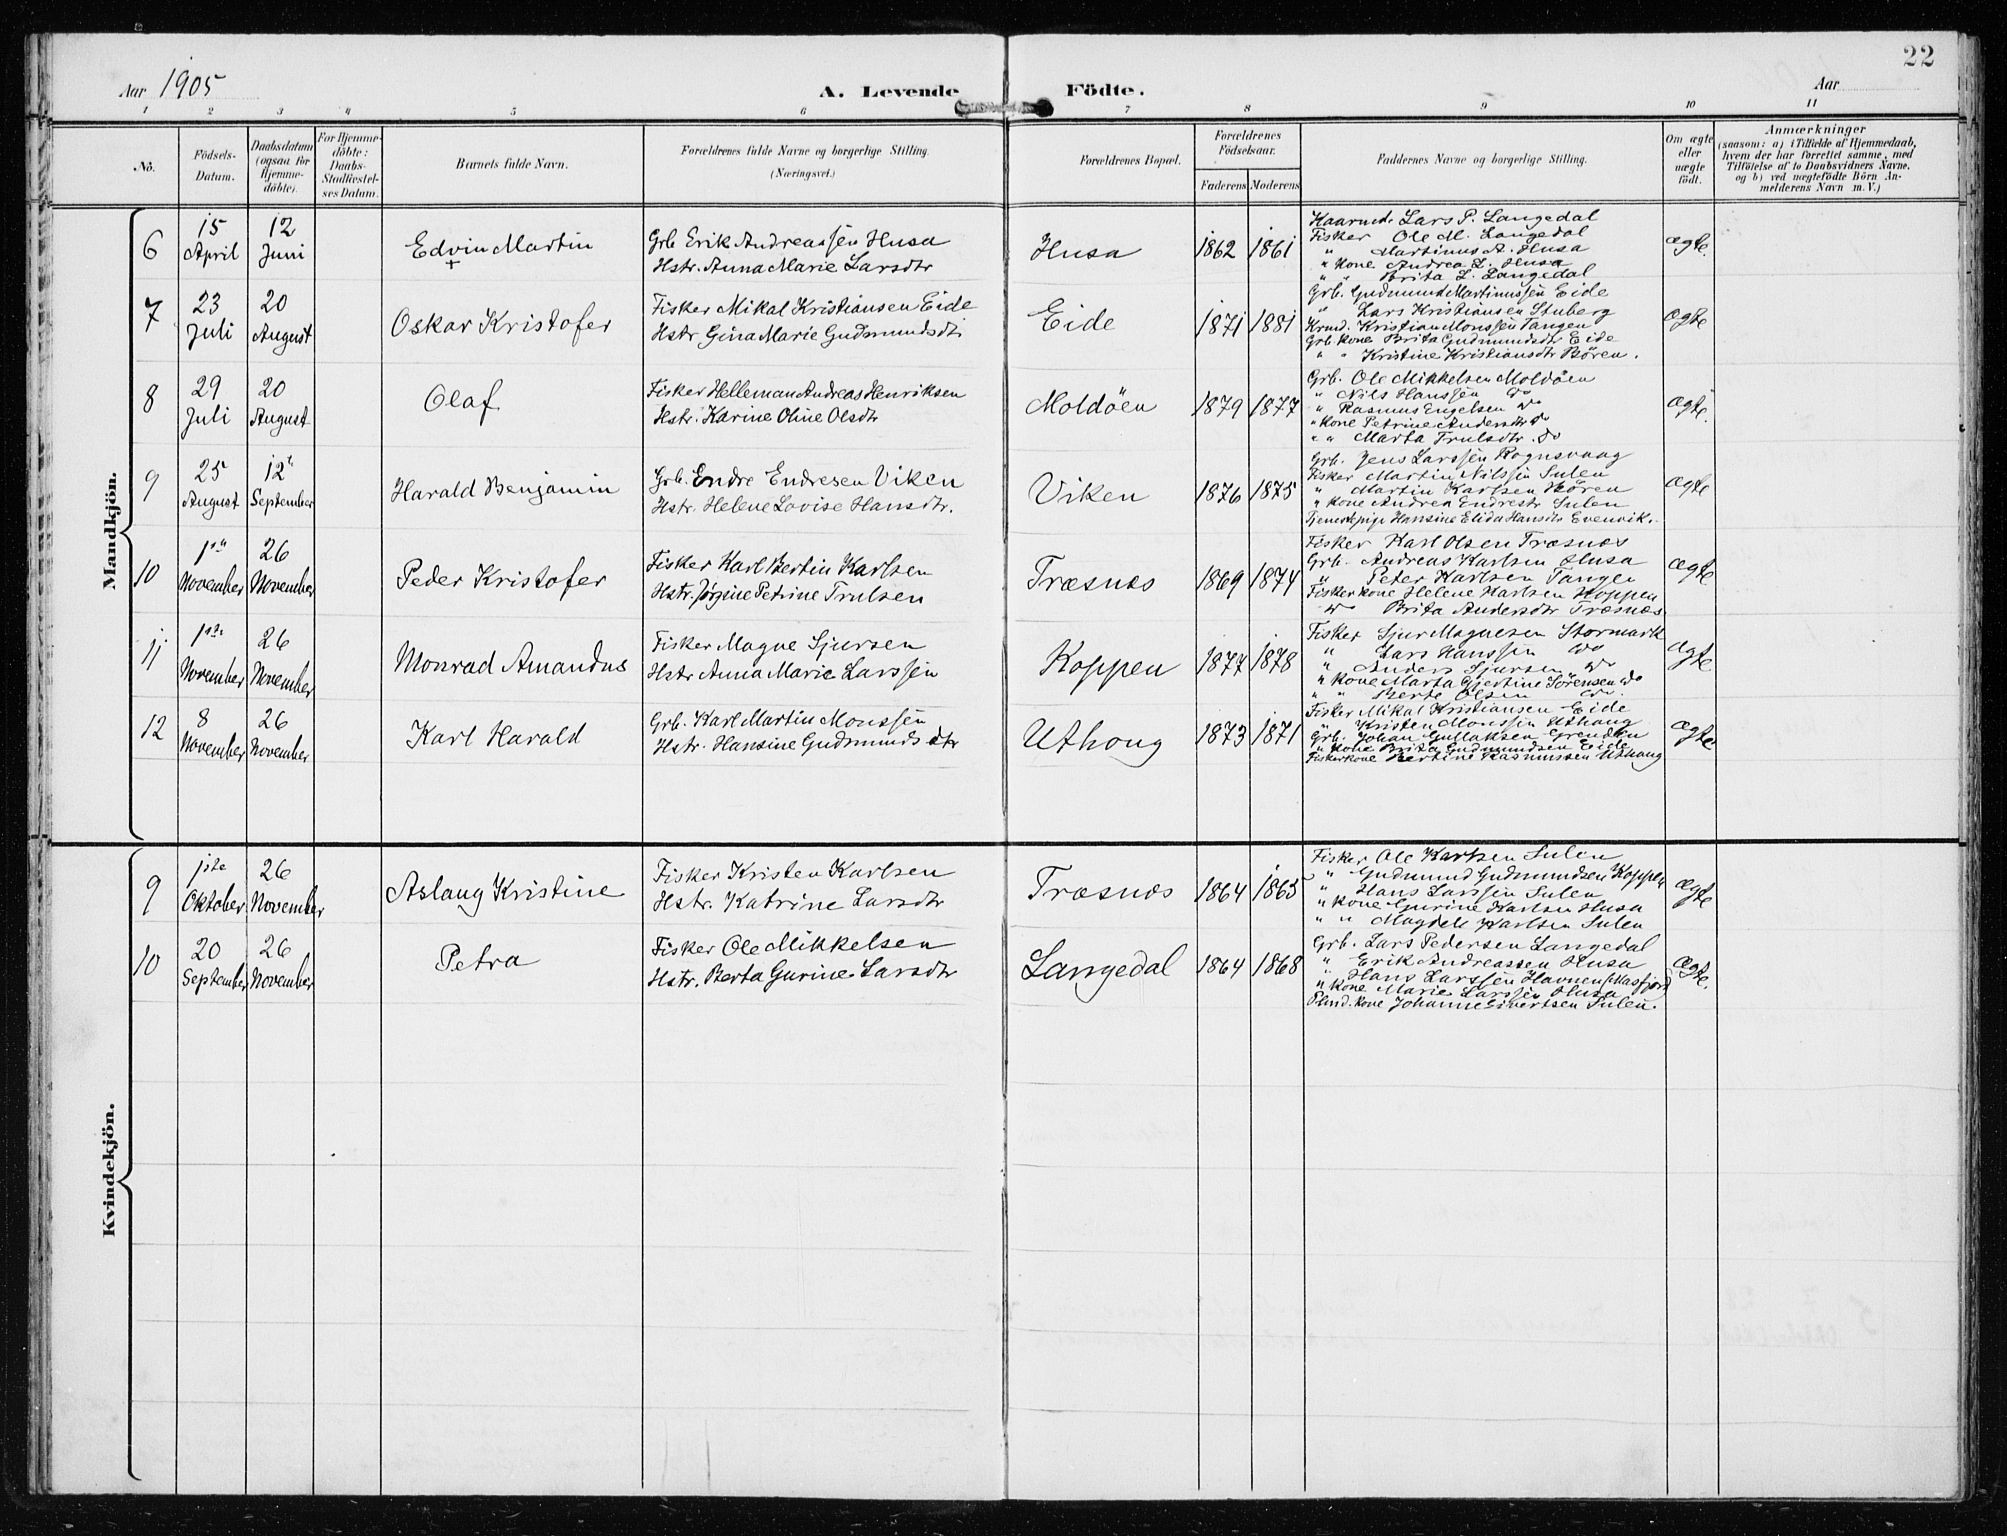 22
Aar 1905
A. Levende Födte.
Aar
1 2 3 4 5 6 7 8 9 10 11
No.
Födsels-
Datum.
Daabsdatum
(ogsaa for
Hjemme-
döbte).
For Hjemme-
döbte:
Daabs-
Stadfæstel-
ses Datum.
Barnets fulde Navn.
Forældrenes fulde Navne og borgerlige Stilling.
(Næringsvei.)
Forældrenes Bopæl.
Forældrenes
Födselsaar.
Faderens Moderens
Faddernes Navne og borgerlige Stilling.
Om ægte
eller
uægte
födt.
Anmærkninger
(saasom: a) i Tilfælde af Hjemmedaab,
hvem der har forrettet samme, med
Tilföielse af to Daabsvidners Navne,
og b) ved uægtefödte Börn An-
melderens Navn m. V.)
Mandkjön.
6
15
April
12
Juni
Edvin Martin
+
Grb Erik Andreassen Husa
Hstr. Anna Marie Larsdtr
Husa
1862 1861
Lars P. Langedal
Fisker Ole M. Langedal
" Martinus A. Husa
" Kone Andrea L. Husa
" " Brita L. Langedal
ægte.
7
23
Juli
20
August
Oskar Kristofer
Fisker Mikal Kristiansen Eide
Hstr Gina Marie Gudmundsdtr
Eide
1871 1881
Grb. Gudmund Martinussen Eide
" Lars Kristiansen Stuberg
Krmd. Kristian Monssen Tangen
Grb kone Brita Gudmundsdtr Eide
" " Kristine Kristiansdtr Bören.
ægte
8
29
Juli
20
August
Olaf
Fisker Helleman Andreas Henriksen
Hstr. Karine Oline Olsdtr
Moldöen
1879 1877
Grb. Ole Mikkelsen Moldöen
" Nils Hanssen do
" Rasmus Engelsen do
" Kone Petrine Andersdtr do
" " Marta Trulsdtr. do
ægte.
9
25
August
12te
September
Harald Benjamin
Grb. Endre Endresen Viken
Hstr. Helene Lovise Hansdtr.
Viken
1876 1875
Grb. Jens Larssen Rognsvaag
Fisker Martin Nilssen Sulen
" Martin Karlsen Bören
" Kone Andrea Endrestr Sulen
Tjenestepige Hansine Elida Hansdtr Evenvik.
ægte
10
1ste
November
26
November
Peder Kristofer
Fisker Karl Bertin Karlsen
Hstr. Jørgine Petrine Trulsen
Træsnæs
1869 1874
Fisker Karl Olsen Træsnæs
Grb. Andreas Karlsen Husa
" Peter Karlsen Tangen
Fisker kone Helene Karlsen Koppen
do Brita Andersdtr Træsnæs
ægte
11
1ste
November
26
November
Monrad Amandus
Fisker Magne Sjursen
Hstr Anna Marie Larssen
Koppen
1877 1878
Fisker Sjur Magnesen Stormark
" Lars Hanssen do
" Anders Sjursen do
" Kone Marta Gjertine Sörensen do
" " Berte Olsen do.
ægte
12
8
November
26
November
Karl Harald
Grb. Karl Martin Monssen
Hstr. Hansine Gudmundsdtr
Uthoug
1873 1871
Fisker Mikal Kristiansen Eide
" Kristen Monssen Uthoug
Grb. Johan Gullaksen Grendlen
" Kone Brita Gudmundsen Eide
Fiskerkone Bertine Rasmussen Uthoug
ægte
Kvindekjön.
9
1ste
Oktober
26
November
Aslaug Kristine
Fisker Kristen Karlsen
Hstr. Katrine Larsdtr
Træsnæs
1864 1865
Fisker Ole Karlsen Sulen
" Gudmund Gudmundsen Koppen
" Hans Larssen Sulen
" Kone Gurine Karlsen Husa
" " Magdele Karlsen Sulen
ægte
10
20
September
26
November
Petra
Fisker Ole Mikkelsen
Hstr. Berta Gurine Larsdtr
Langedal
1864 1868
Grb. Lars Pedersen Langedal
" Erik Andreassen Husa
" Hans Larssen Havnen (Masfjord)
" Kone Marie Larssen Husa
Johanne Sivertsen Sulen.
ægte.